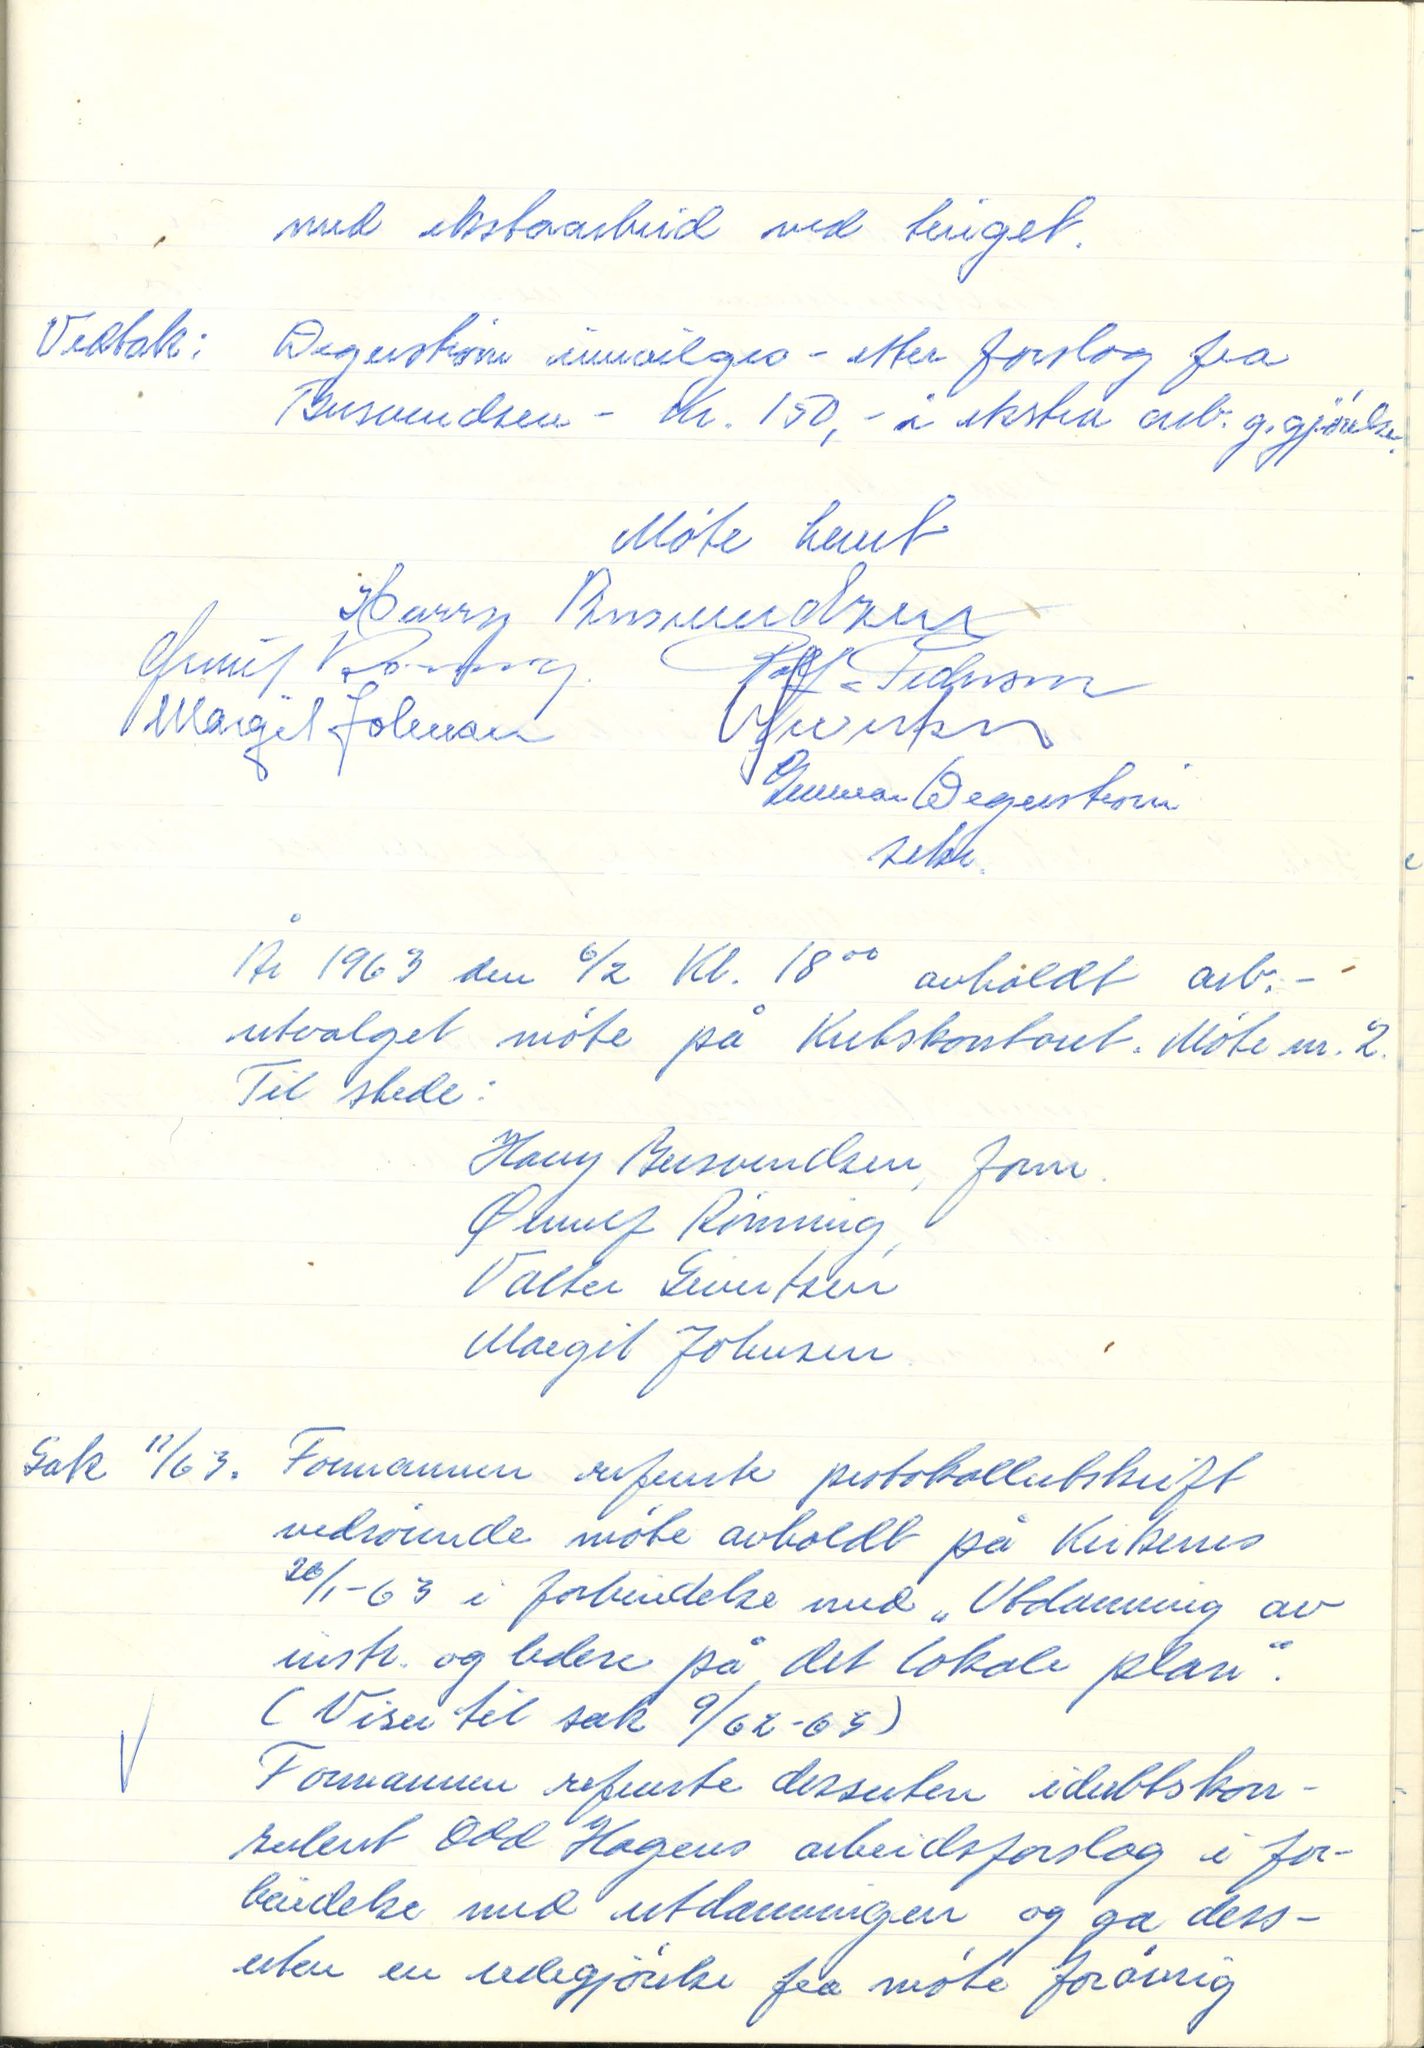 med ekstraarbeid ved tinget.
Vedtak: Degerström innvilges - etter forslag fra
Busvendsen - Kr. 150,- i ekstra arb. g.gjörelse.
Möte hevet
Harry Busvendsen
Ørnulf Rönning Rolf Pedersen
Margit Johnsen
Gunnar Degerström
sekr.
År 1963 den 6/2 Kl. 18⁰⁰ avholdt arb.-
utvalget möte på Kretskontoret. Möte nr. 2.
Til stede:
Harry Busvendsen, form.
Ørnulf Rönning,
Valter Sivertsen
Margit Johnsen
Sak 11/63. Formannen refererte protokollutskrift
vedrörende möte avholdt på Kirkenes
26/1-63 i forbindelse med „Utdanning av
instr. og ledere på det lokale plan“.
(Viser til sak 9/62-63)
Formannen refererte dessuten idrettskon-
sulent Odd Hagens arbeidsforslag i for-
bindelse med utdanningen og ga dess-
uten en redegjörelse fra möte foröverig